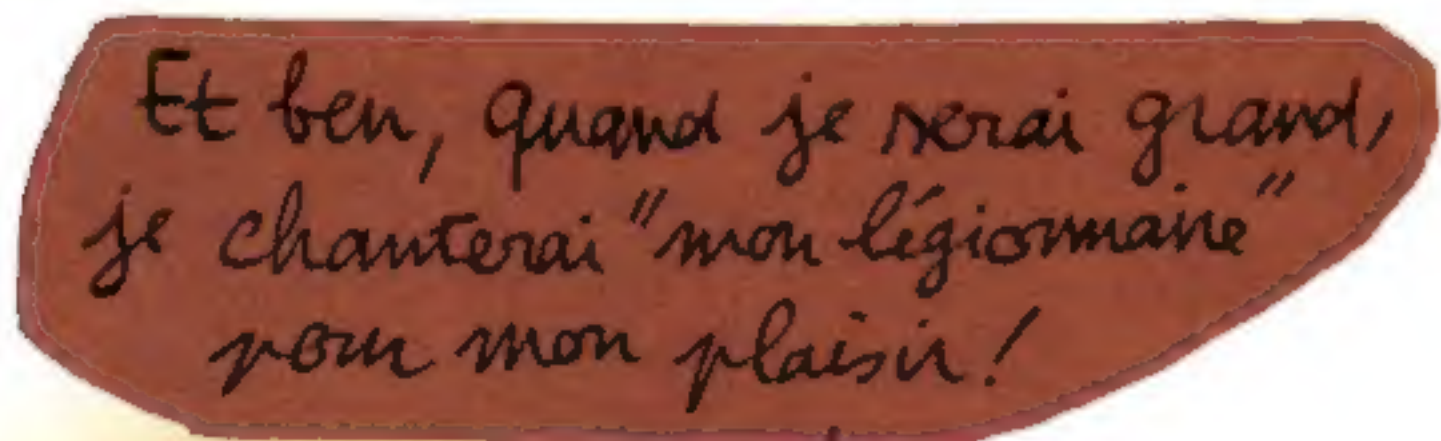 Et ben, quand je serai grand,
je chanterai "mon légionnaire"
pour mon plaisir !